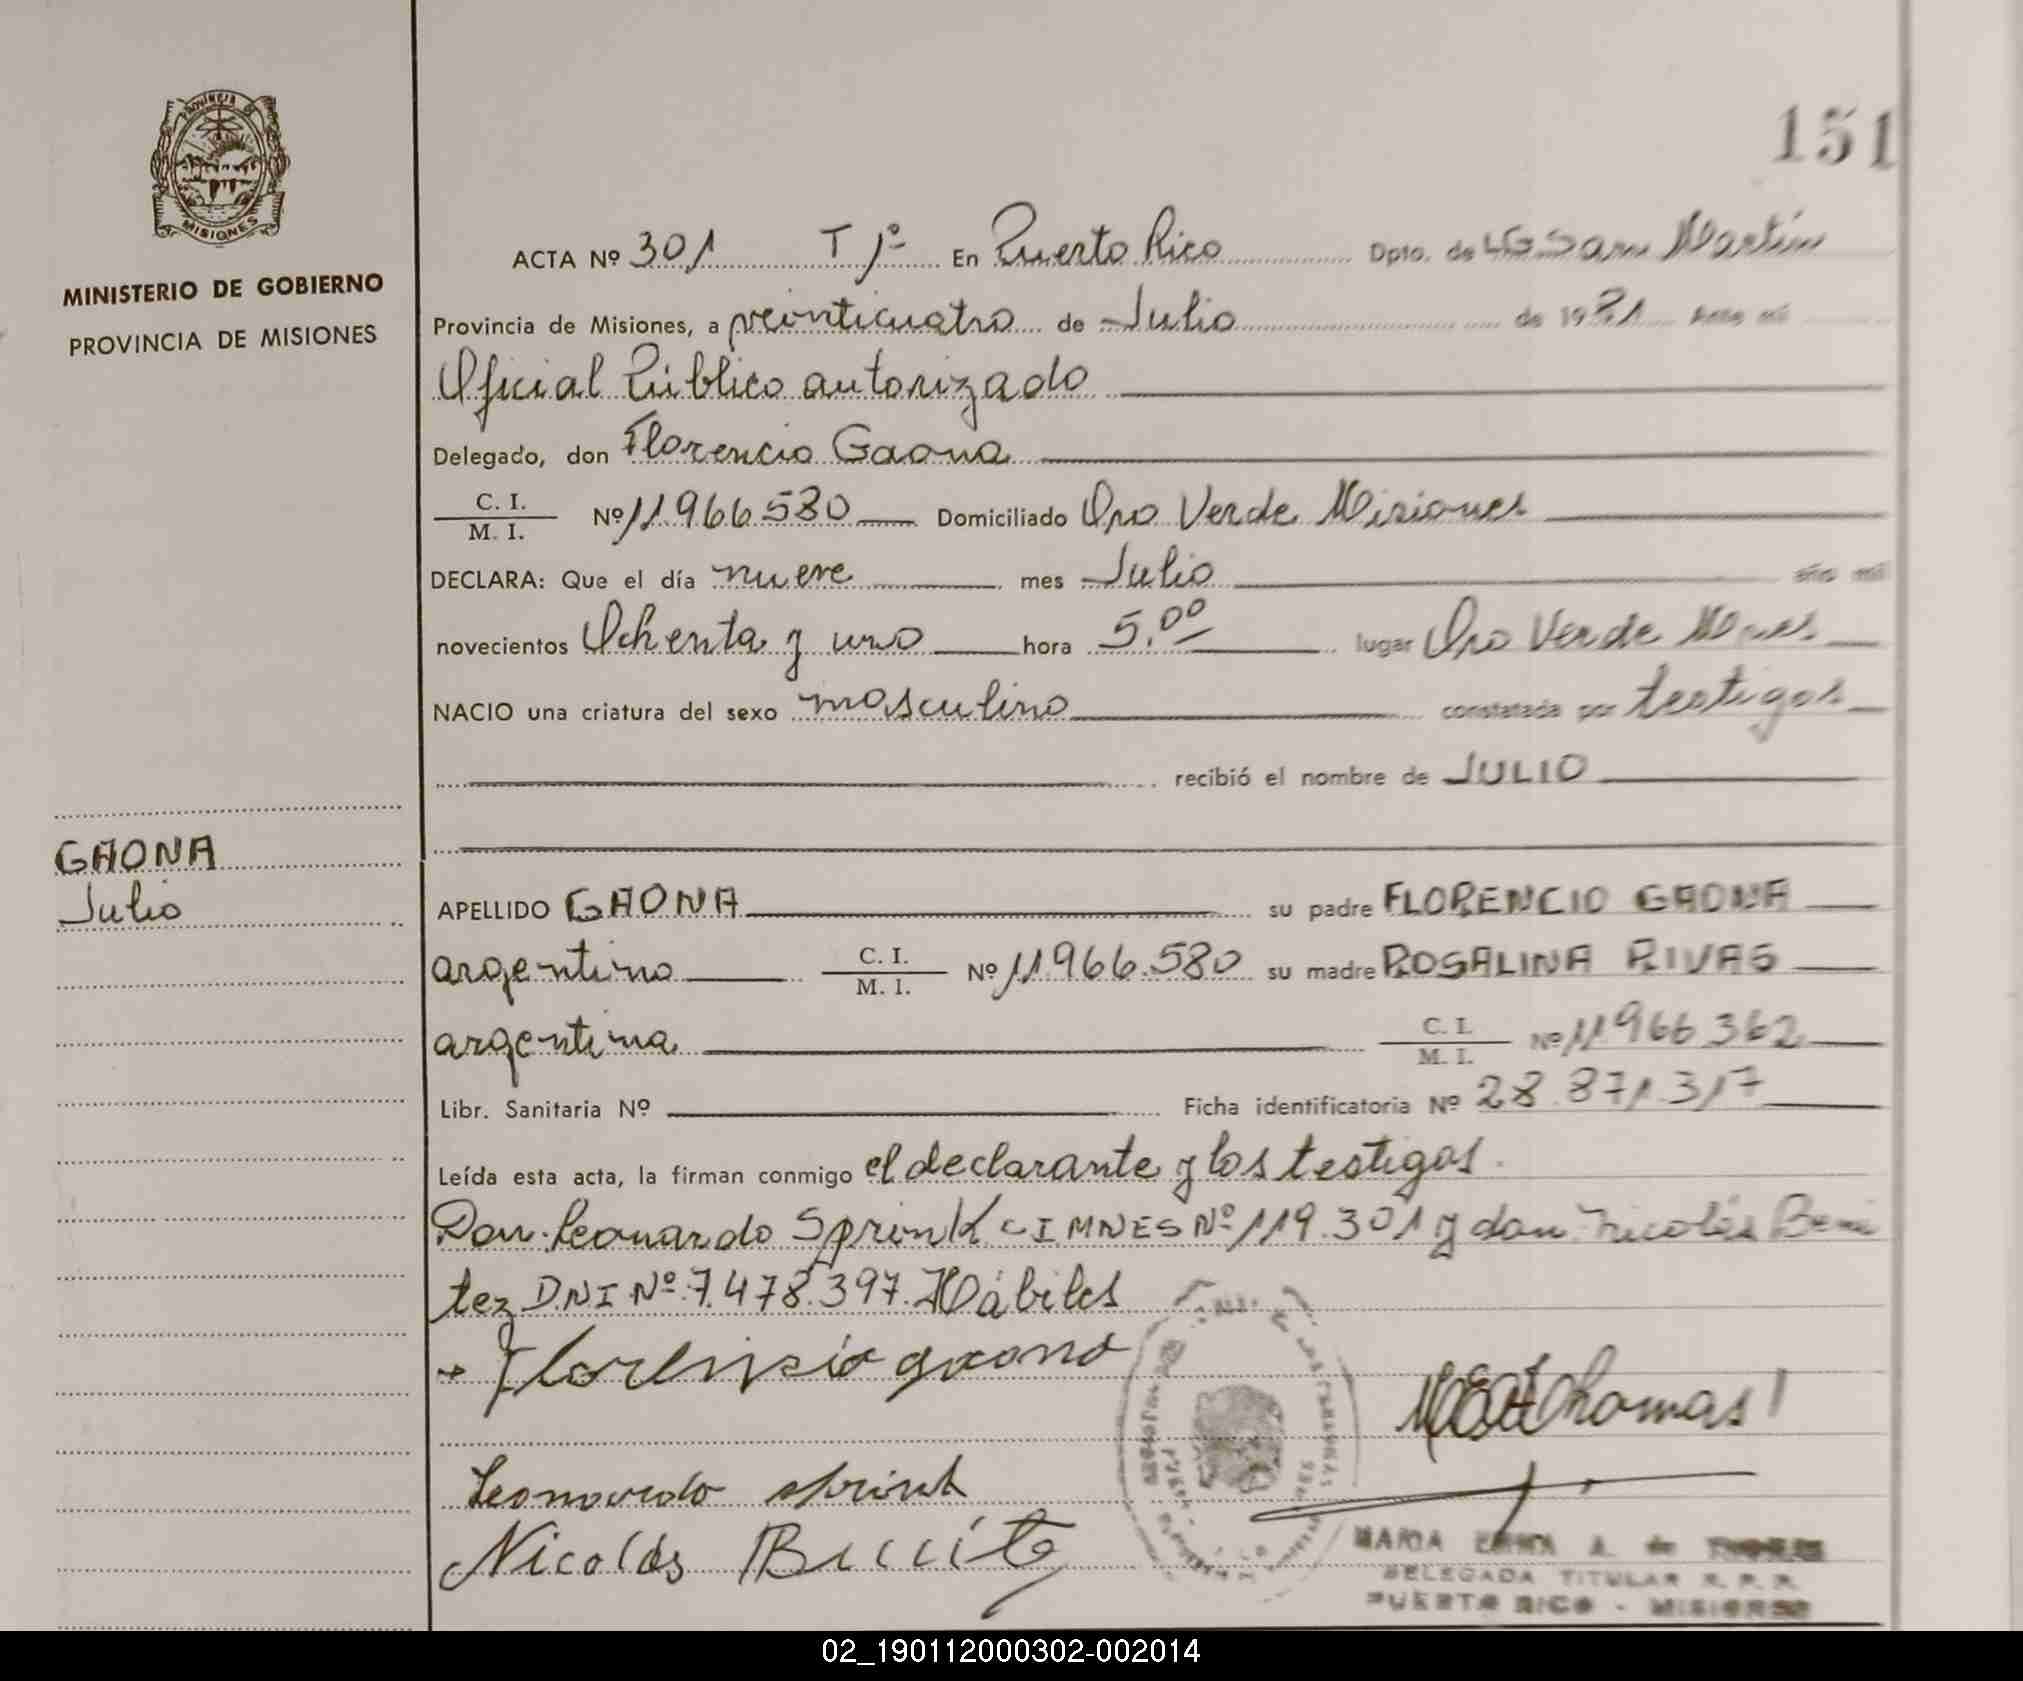 151
PROVINCIA DE
MISIONES
MINISTERIO DE GOBIERNO
PROVINCIA DE MISIONES
ACTA Nº 301 T 1º En Puerto Rico Dpto. de LG San Martín
Provincia de Misiones, a veinticuatro de Julio de 1981 Ante mi
Oficial Público autorizado
Delegado, don Florencio Gaona
C. I.
M. I. Nº 11.966.580 Domiciliado Oro Verde Misiones
DECLARA: Que el día nueve mes Julio año mil
novecientos Ochenta y uno hora 5.00 lugar Oro Verde Mnes
NACIO una criatura del sexo masculino constatada por testigos
recibió el nombre de JULIO
GAONA
Julio
APELLIDO GAONA su padre FLORENCIO GAONA
argentino C. I. M. I. Nº 11.966.580 su madre ROSALINA RIVAS
argentina C. I. M. I. Nº 11966362
Libr. Sanitaria Nº Ficha identificatoria Nº 28.871.317
Leída esta acta, la firman conmigo el declarante y los testigos.
Don Leonardo Sprink CI MNES Nº 119.301 y don Nicolás Beni
tez DNI Nº 7.478.397. Hábiles
Florensio gaona
Thomas
Leonardo sprink
Nicolás
MARIA A. de
DELEGADA TITULAR R. P. P.
PUERTO RICO - MISIONES
02_190112000302-002014